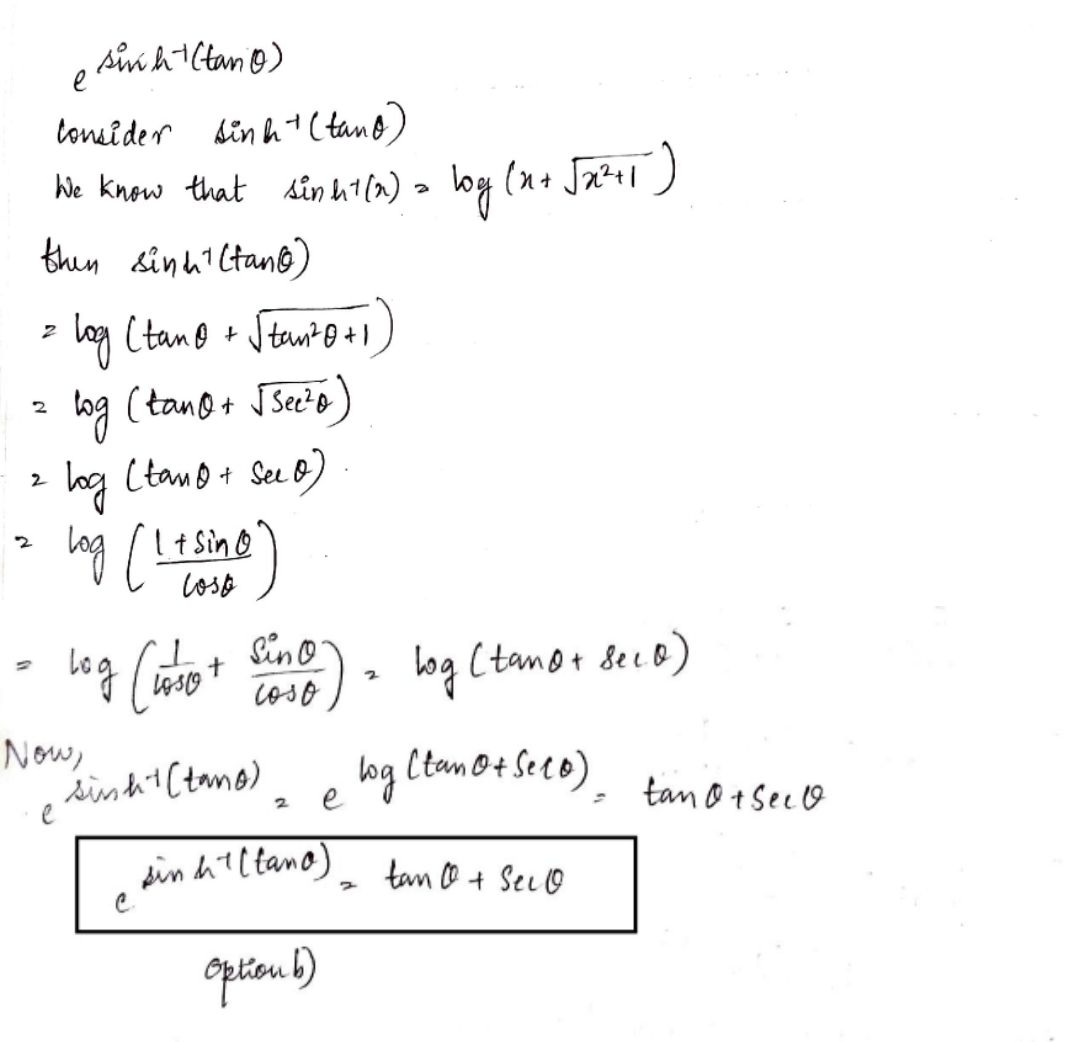 e^sinh⁻¹(tanθ)
Consider sinh⁻¹(tanθ)
We know that sinh⁻¹(x) = log (x + √x²+1)
then sinh⁻¹(tanθ)
= log (tanθ + √tan²θ+1)
= log (tanθ + √Sec²θ)
= log (tanθ + Secθ).
= log (1 + Sinθ / Cosθ)
= log (1/cosθ + Sinθ/cosθ) = log (tanθ + secθ)
Now,
e^sinh⁻¹(tanθ) = e^log(tanθ + Secθ) = tanθ + Secθ
e^sinh⁻¹(tanθ) = tanθ + Secθ
Option b)